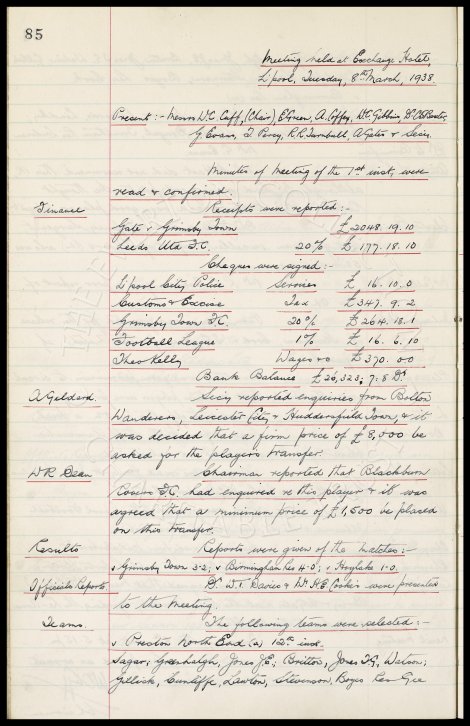 85
Meeting held at Exchange Hotel,
L'pool, Tuesday, 8th March, 1938.
Present :- Messrs W.C. Cuff, (Chair), E. Green, A. Coffey, Dr. C.S. Baxter,
G. Evans, T. Percy, R.R. Turnbull, A. Gates & Secy.
Minutes of Meeting of the 1st inst, were
read & confirmed.
Finance Receipts were reported :-
Gate v Grimsby Town £2048. 19. 10
Leeds Utd F.C. 20% £. 177. 18. 10
Cheques were signed :-
L'pool City Police Services £ 16. 10. 0
Customs & Excise Tax £347. 9. 2
Grimsby Town F.C. 20% £264. 18. 1
Football League 1% £ 16. 6. 10
Theo Kelly Wages £370. 0 0
Bank Balance £26,323; 7: 8 Dr
A Geldard. Secy reported enquiries from Bolton
Wanderers, Leicester City & Huddersfield Town, & it
was decided that a firm price of £8,000 be
asked for the players transfer.
W R Dean Chairman reported that Blackburn
Rovers F.C. had enquired re this player & it was
agreed that a minimum price of £1,500 be placed
on this transfer.
Results Reports were given of the matches :-
v Grimsby Town 3-2; v Birmingham Res 4-0; v Hoylake 1-0.
Officials Reports W. Davies & H.E. Cooke's were presented
to the Meeting.
Teams. The following teams were selected :-
v Preston North End (a) 12th inst.
Sagar; Greenhalgh, Jones J.E; Britton, Jones T.G, Watson;
Gillick, Cunliffe, Lawton, Stevenson, Boyes Res Gee